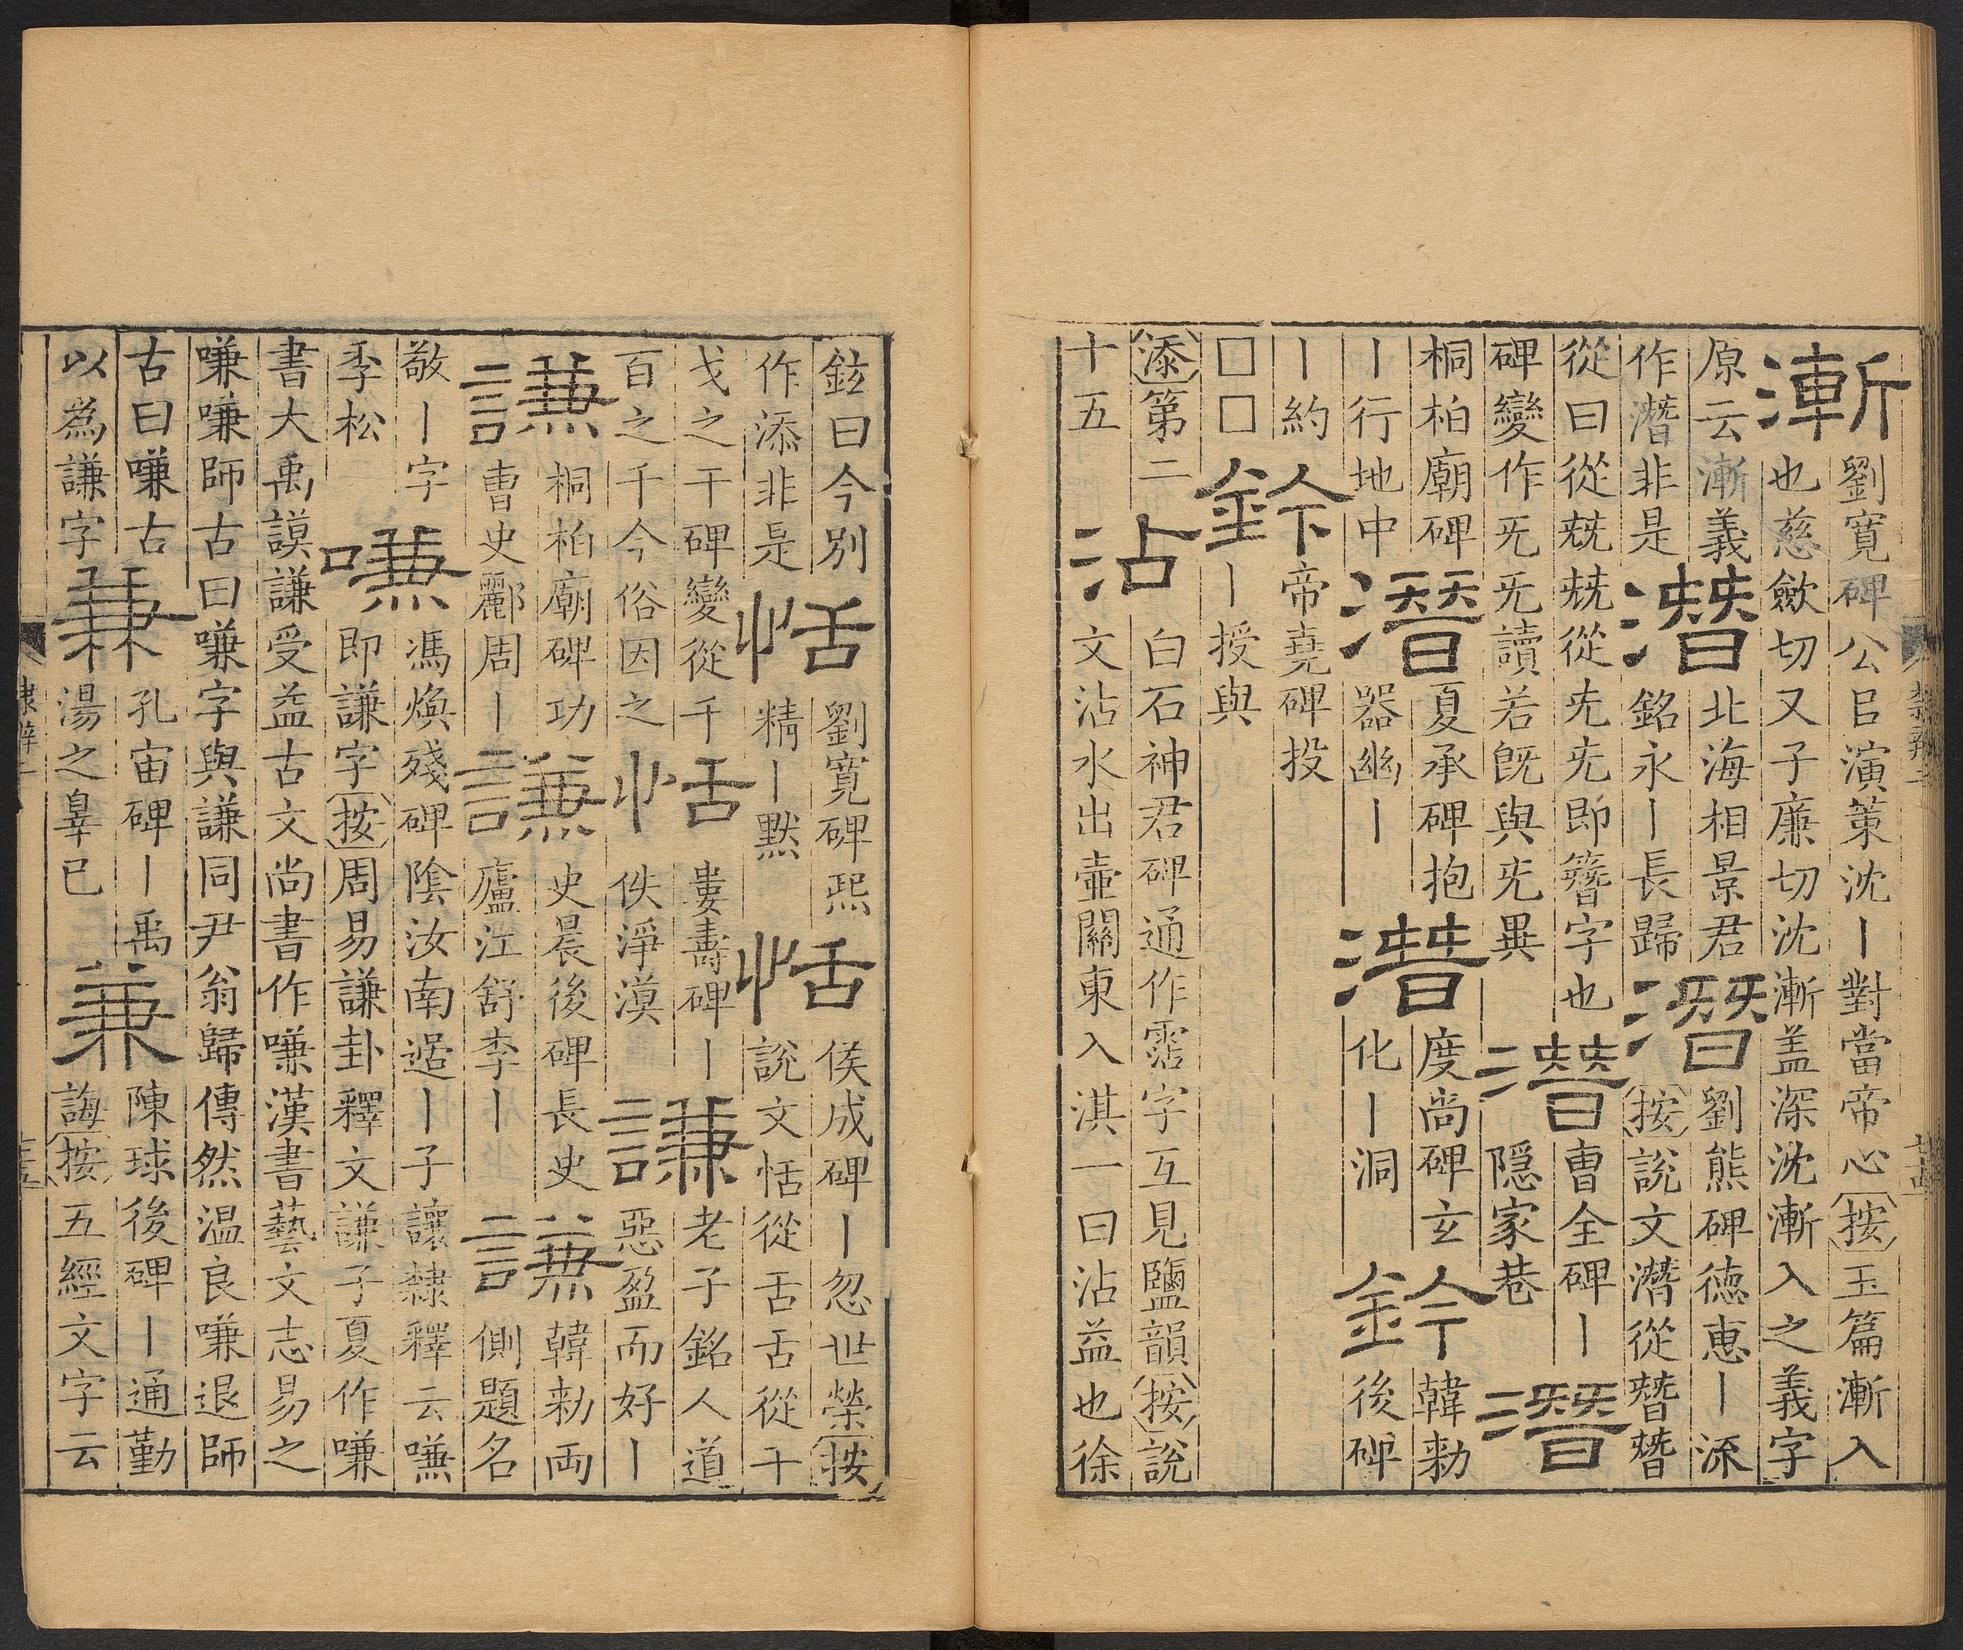 漸
劉寬碑公官演策沈丨對當帝心按玉篇漸入
也慈歛切又子廉切沈漸盖深沈漸入之義字
原云漸義
作潛非是
潛
北海相景君
銘永丨長歸
潛
劉熊碑徳惠丨源
按說文潛從朁朁
從曰從兓兓從兂兂即簪字也
碑變作旡旡讀若旣與兂異
潛
曹全碑丨
隱家巷
潛
桐柏廟碑
丨行地中
潛
夏承碑抱
器幽丨
潛
度尚碑玄
化丨洞
鈐
韓勑
後碑
丨約
□□
鈐
帝堯碑投
丨授與
添第二
十五
沾
白石神君碑通作霑字互見鹽韻按說
文沾水出壺關東入淇一曰沾益也徐
鉉曰今别
作添非是
恬
劉寬碑熙
精丨默
恬
侯成碑丨忽世榮按
說文恬從舌舌從干
戈之干碑變從千
百之千今俗因之
恬
婁壽碑丨
佚淨漠
謙
老子銘人道
惡盈而好丨
謙
桐柏廟碑功
曹史酈周丨
謙
史晨後碑長史
廬江舒李丨
謙
韓勑両
側題名
敬丨字
季松
嗛
馮煥殘碑陰汝南丨子讓隸釋云嗛
即謙字按周易謙卦釋文謙子夏作嗛
書大禹謨謙受益古文尚書作嗛漢書藝文志易之
嗛嗛師古曰嗛字與謙同尹翁歸傳然温良嗛退師
古曰嗛古
以為謙字
兼
孔宙碑丨禹
湯之辠已
兼
陳球後碑丨通勤
誨按五經文字云